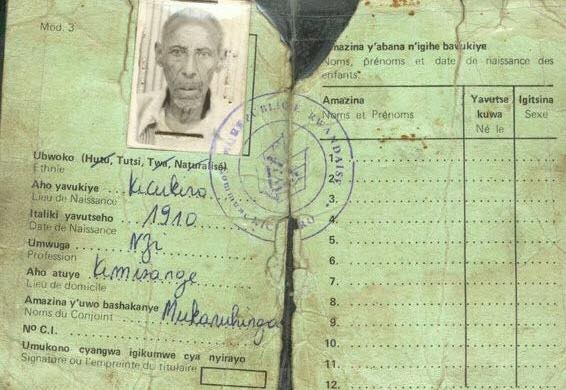 Mod. 3
Ubwoko (Hutu, Tutsi, Twa, Naturalisé)
Ethnie
Aho yavukiye Kicukiro
Lieu de Naissance
Italiki yavutseho 1910
Date de Naissance
Umwuga
Profession
Aho atuye Kimisange
Lieu de domicile
Amazina y'uwo bashakanye Mukaruhinga
Noms du Conjoint
Nº C.I.
Umukono cyangwa igikumwe cya nyirayo
Signature ou l'empreinte du titulaire
REPUBLIQUE RWANDAISE
Amazina y'abana n'igihe bavukiye
Noms, prénoms et date de naissance des
enfants
Amazina
Noms et Prénoms
Yavutse
kuwa
Né le
Igitsina
Sexe
1.
2.
3.
4.
5.
6.
7.
8.
9.
10.
11.
12.